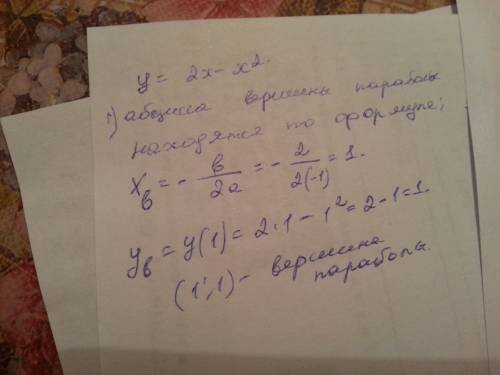 y = 2x - x².
1) абциса вершины параболы
находятся по формуле;
Xв = - в/2a = - 2/2(-1) = 1.
yв = y(1) = 2·1 - 1² = 2 - 1 = 1.
(1; 1) - вершина
параболы.